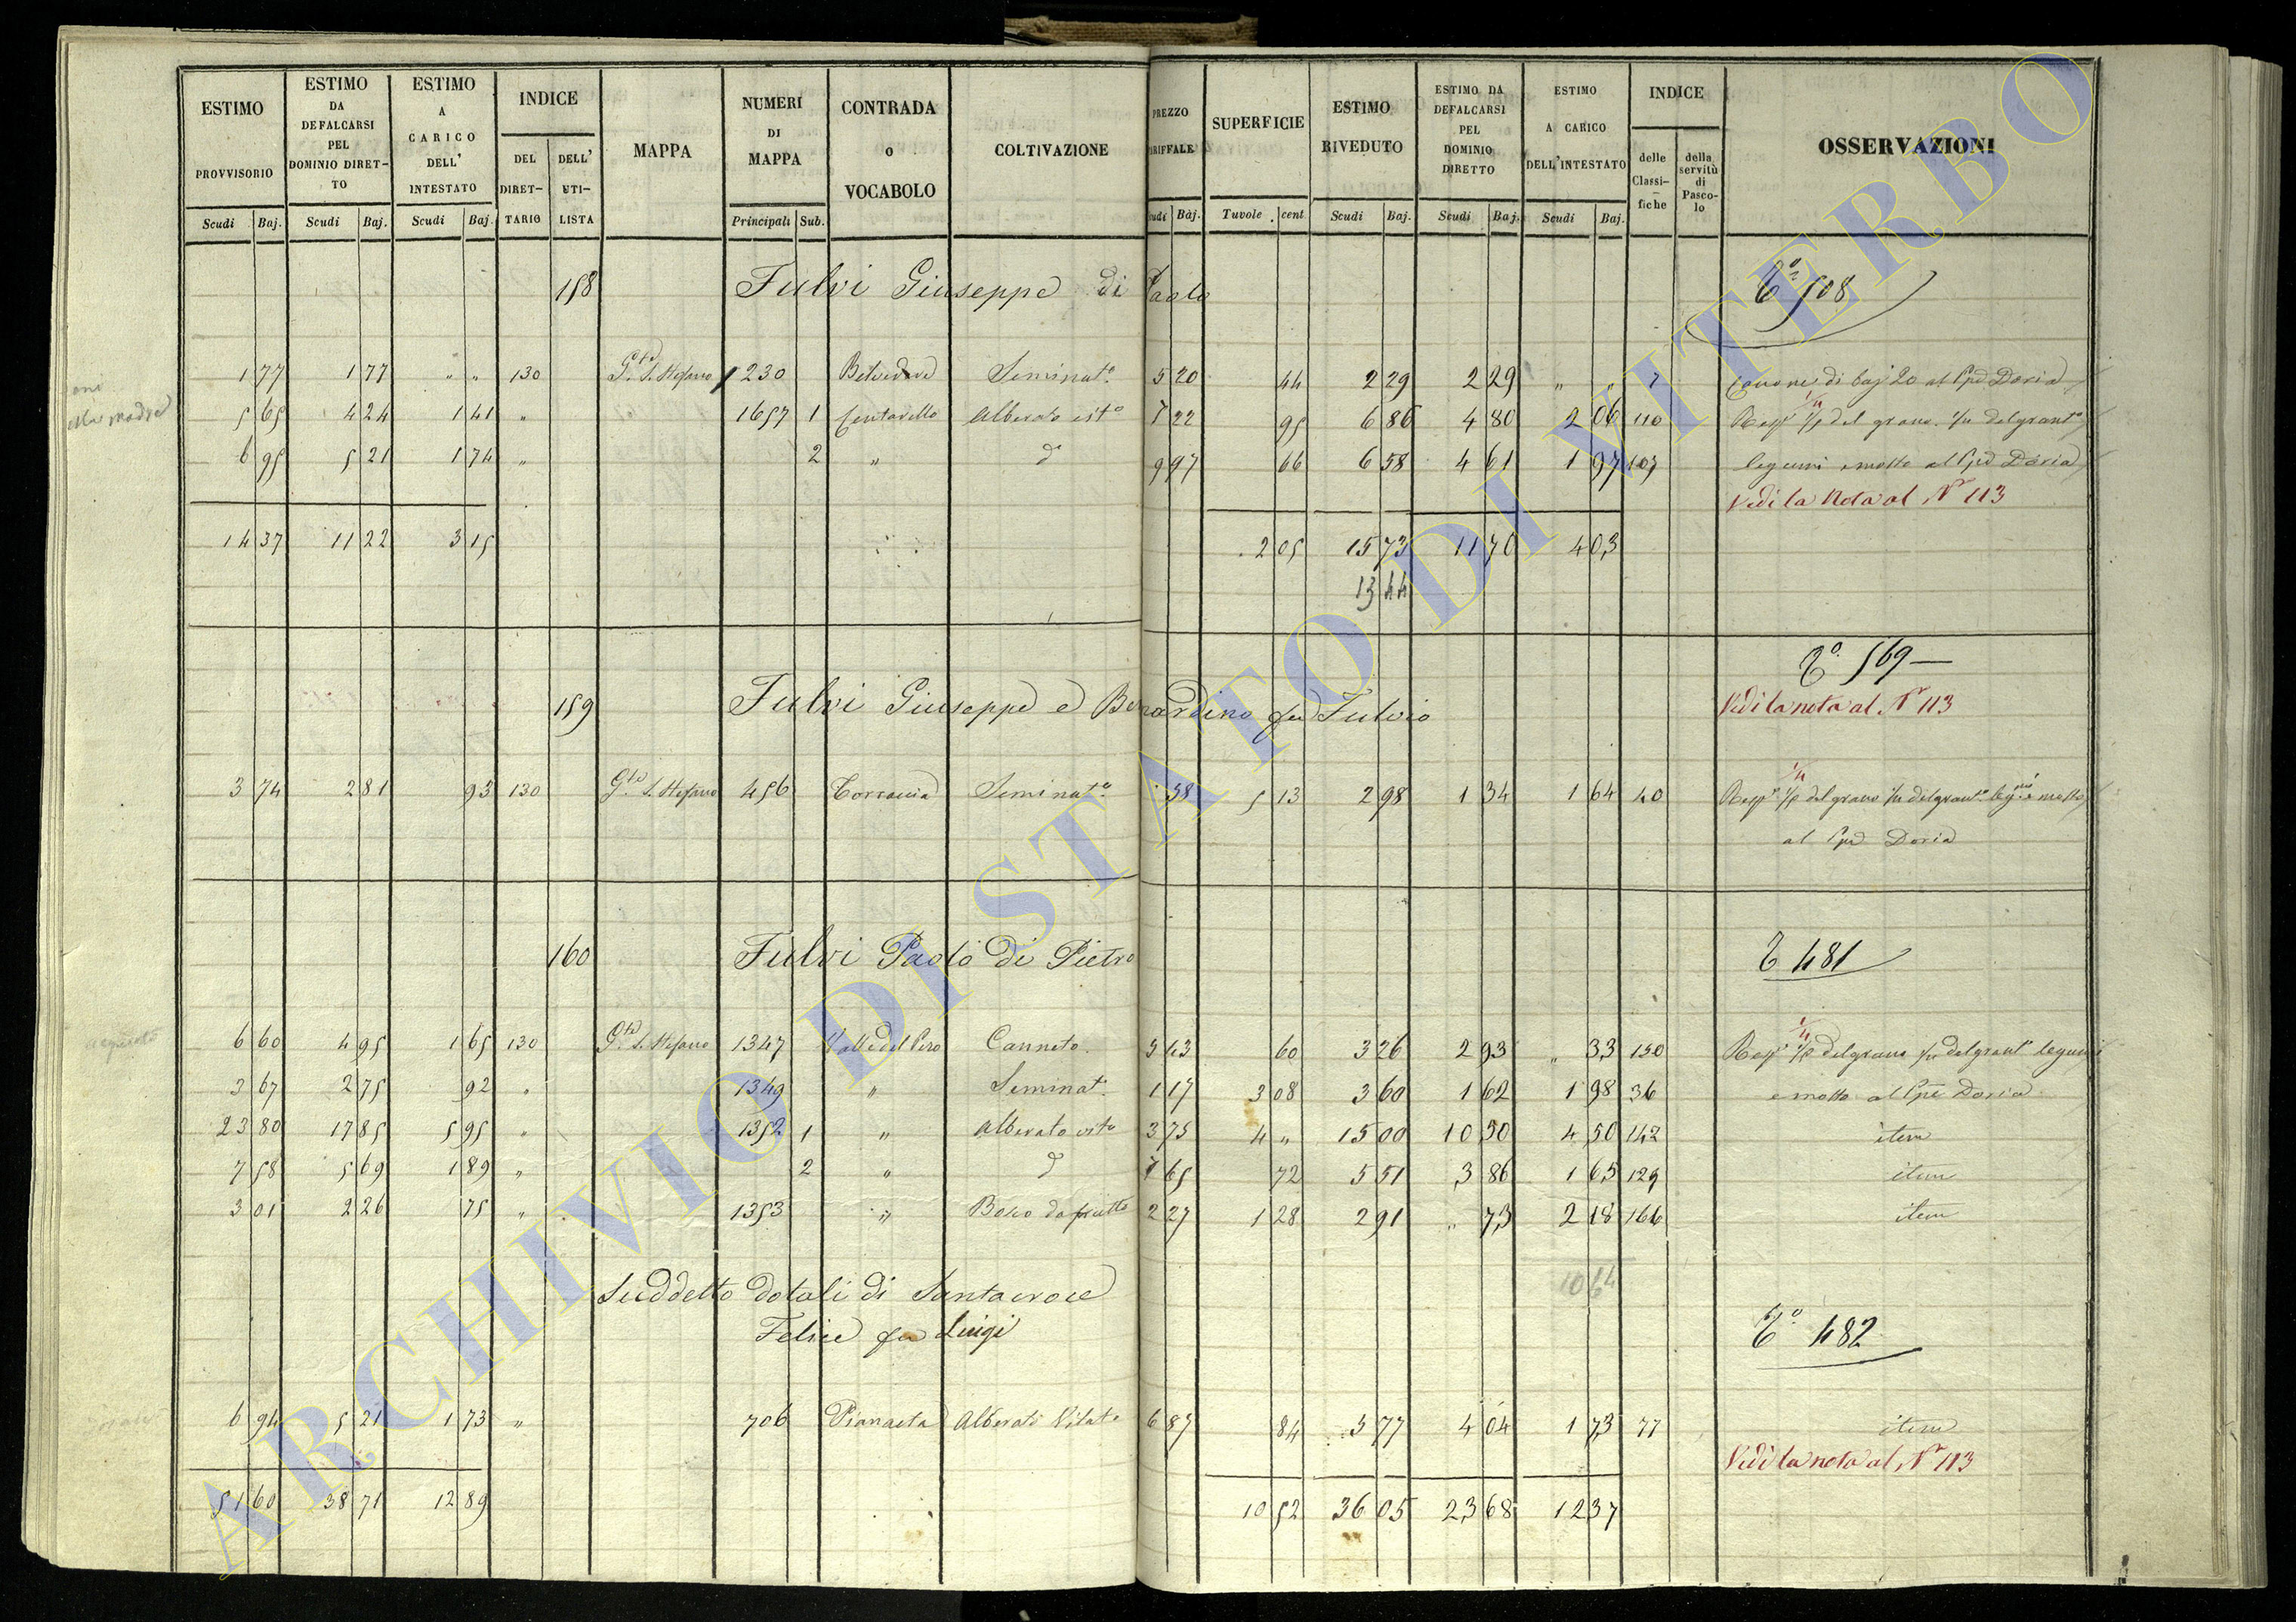 ESTIMO PROVVISORIO | ESTIMO DA DEFALCARSI PEL DOMINIO DIRETTO | ESTIMO A CARICO DELL' INTESTATO | INDICE DEL DIRETTARIO | DELL' UTILISTA | MAPPA | NUMERI DI MAPPA | CONTRADA o VOCABOLO | COLTIVAZIONE | PREZZO | SUPERFICIE | ESTIMO RIVEDUTO | ESTIMO DA DEFALCARSI PEL DOMINIO DIRETTO | ESTIMO A CARICO DELL'INTESTATO | INDICE delle Classifiche | della servitù di Pascolo | OSSERVAZIONI
Scudi Baj. Scudi Baj. Scudi Baj. Principali Sub. Baj. Tavole cent Scudi Baj. Scudi Baj. Scudi Baj.
158 Fulvi Giuseppe di Paolo 508
1 77 1 77 " " 130 S. Stefano 1230 Belvedere Seminat.o 5 20 44 2 29 2 29 " " 7 Canone di baj 20 al Doria
5 65 4 24 1 41 " 1657 1 Centarello Alberato vit.o 7 22 95 6 86 4 80 2 06 110 del grano
6 95 5 21 1 74 " 2 " d 9 97 66 6 58 4 61 1 97 107 legumi e mosto al Doria
Vedi la Nota al N 113
14 37 11 22 3 15 2 05 15 73 11 70 4 03
13 44
569
159 Fulvi Giuseppe e Bernardino fu Fulvio Vedi la nota al N 113
3 74 2 81 93 130 S. Stefano 456 Torraccia Seminat.o 58 5 13 2 98 1 34 1 64 40 del grano e mosto
al Doria
160 Fulvi Paolo di Pietro 481
6 60 4 95 1 65 130 S. Stefano 1347 Valle del Pero Canneto 5 43 60 3 26 2 93 " 33 150 del grano legumi
3 67 2 75 92 " 1349 " Seminat. 1 17 3 08 3 60 1 62 1 98 36 e mosto al Doria
23 80 17 85 5 95 " 1352 1 " Alberato vit.o 3 75 4 " 15 00 10 50 4 50 142 item
7 58 5 69 1 89 " 2 " d 7 65 72 5 51 3 86 1 65 129 item
3 01 2 26 75 " 1353 " Bosco da frutto 2 27 1 28 2 91 " 73 2 18 166 item
10 64
Suddetto dotali di Santacroce
Felice fu Luigi 482
6 94 5 21 1 73 " 706 Pianaeta Alberato Vitato 6 87 84 5 77 4 04 1 73 77 item
Vedi la nota al N 113
51 60 38 71 12 89 10 52 36 05 23 68 12 37
ARCHIVIO DI STATO DI VITERBO